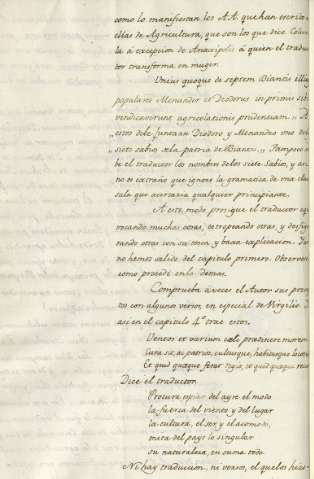 como lo manifiestan los A.A. que han escrito
ellas de Agricultura, que son los que dice Colum
la à excepcion de Anaxipolis à quien el traduc
tor transforma en muger.
Unius quoque de septem Biantis illius
populares Menander et Diodorus in primis sibi
vindicaverunt agricolationis prudentiam.
estos debe juntarse Diodoro y Menandro uno de
siete sabios de la patria de Biante. Tampoco
be el traductor los nombres de los siete Sabios, y asi
no es extraño que ignore la gramatica de una clau
sula que acertaria qualquier principiante.
A este modo prosigue el traductor equi
vocando muchas cosas, estropeando otras, y desfigu
rando otras con su tosca y baxa explicacion.
no hemos salido del capitulo primero. Observemos
como procede en lo demas.
Comprueba à veces el Autor sus precep
tos con algunos versos, en especial de Virgilio
asi en el capitulo 4º trae estos.
Ventos et varium cæli prædiscere morem
Cura sit, ac patrios, cultusque, habitusque locorum
Et quid quæque ferat regio, et quid quæque recu
Dice el traductor.
Procura copiar del ayre el modo
la fuerza del viento y del lugar
la cultura, el ser y el acomodo,
mira del pays lo singular
su naturaleza, en suma todo
Ni hay traduccion, ni versos, el que los hizo